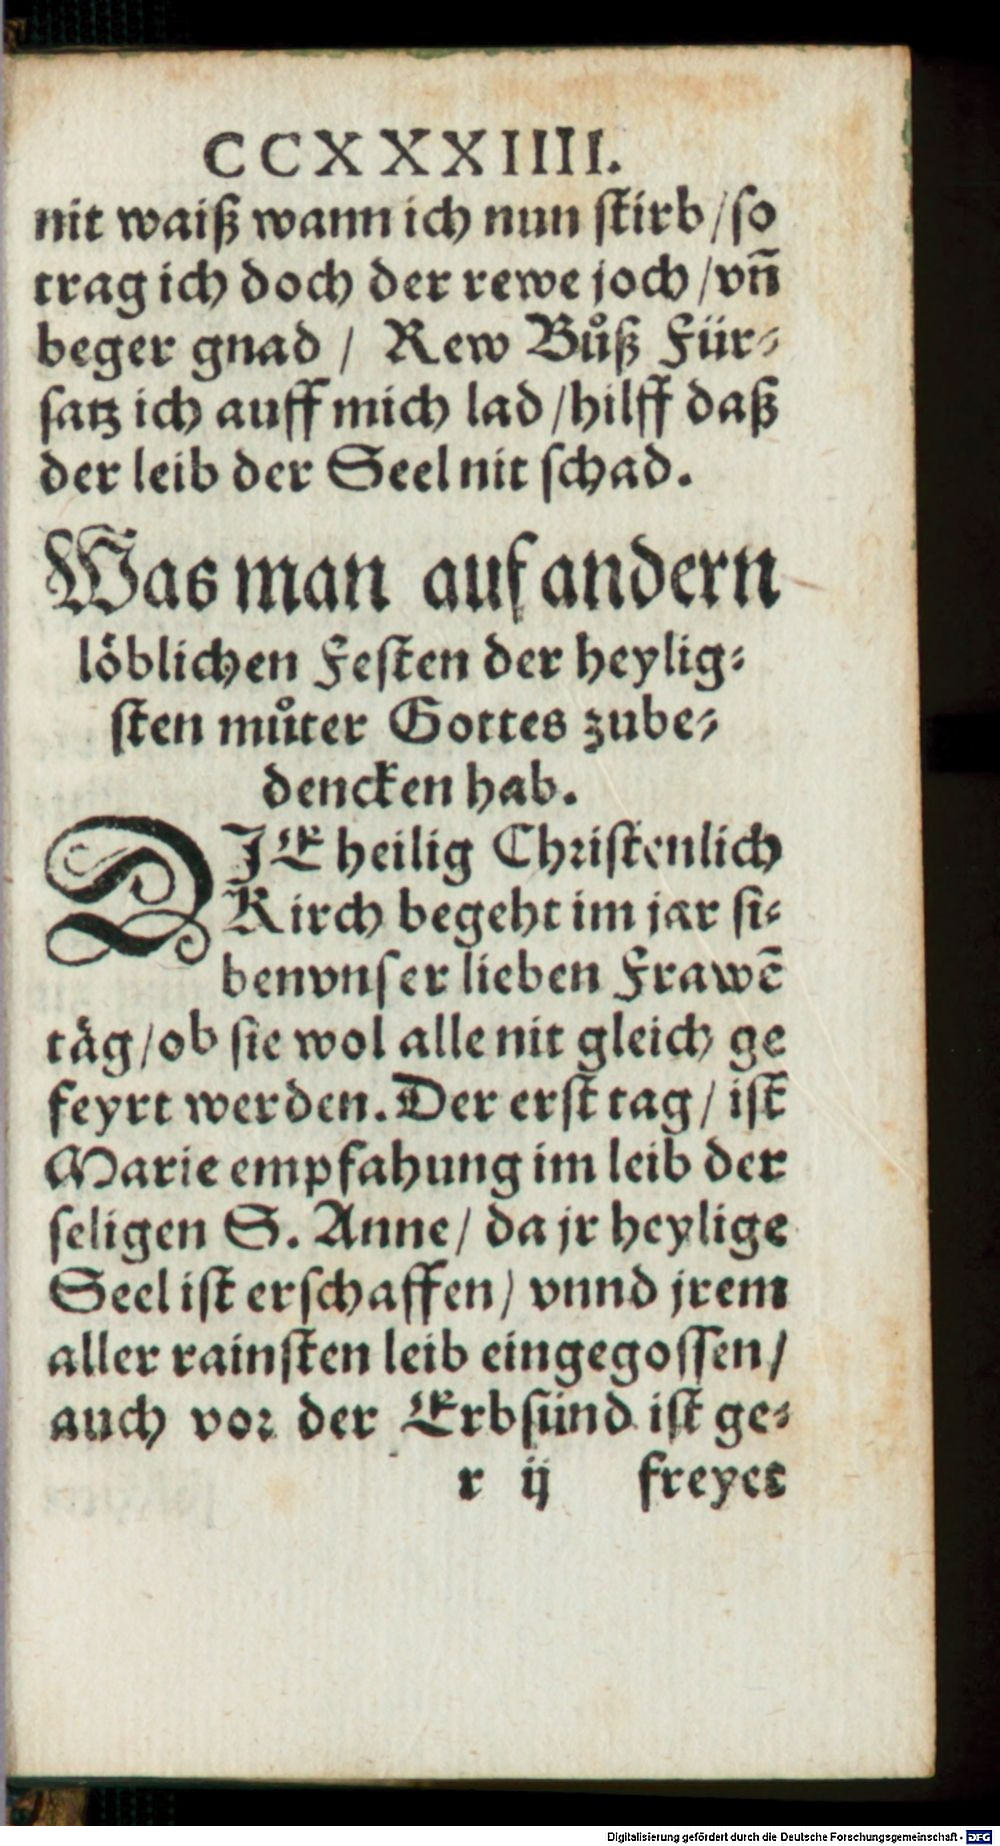 CCXXXIIII.
nit waiß wann ich nun ſtirb / ſo
trag ich doch der rewe joch / vn̄
beger gnad / Rew Bůß Für⸗
ſatz ich auff mich lad / hilff daß
der leib der Seel nit ſchad.
Was man auf andern
löblichen Feſten der heylig⸗
ſten můter Gottes zube⸗
dencken hab.
DIE heilig Chriſtenlich
Kirch begeht im jar ſi⸗
ben vnſer lieben Frawē
täg / ob ſie wol alle nit gleich ge
feyrt werden. Der erſt tag / iſt
Marie empfahung im leib der
ſeligen S. Anne / da jr heylige
Seel iſt erſchaffen / vnnd jrem
aller rainſten leib eingegoſſen /
auch vor der Erbſünd iſt ge⸗
r ij freyet
Digitalisierung gefördert durch die Deutsche Forschungsgemeinschaft - DFG